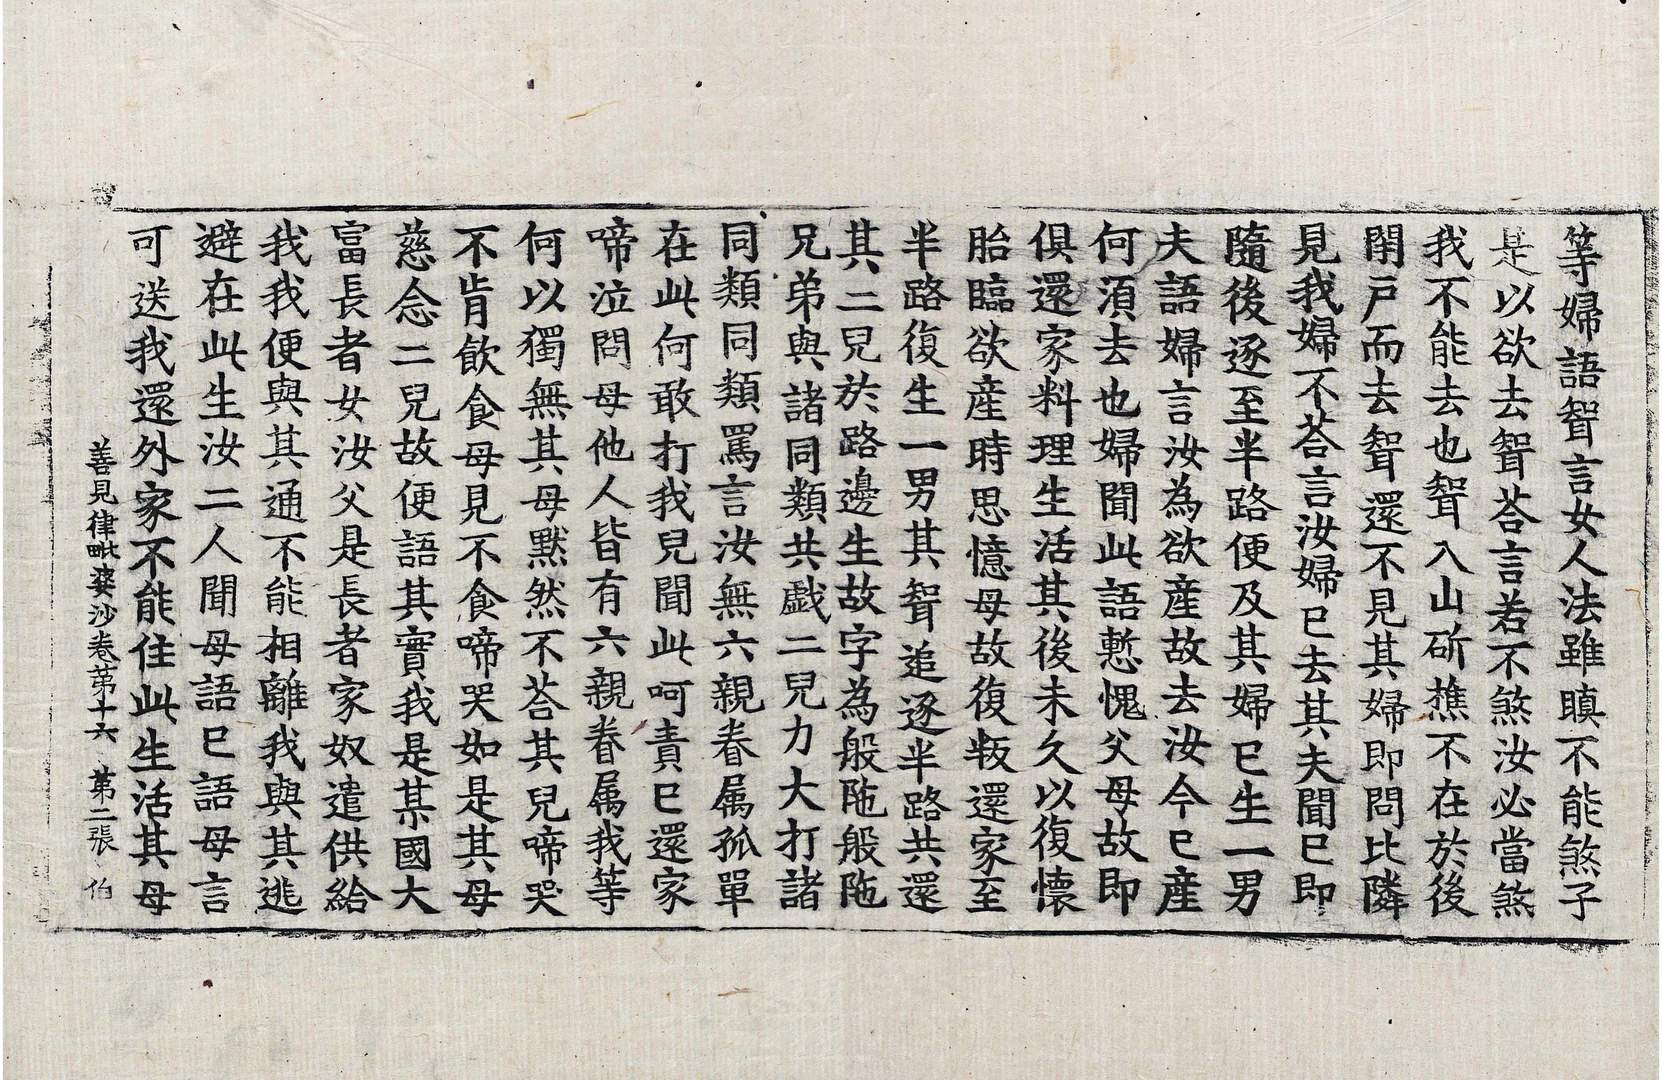 等婦語聟言女人法雖瞋不能煞子
是以欲去聟荅言若不煞汝必當煞
我不能去也聟入山斫樵不在於後
閇戸而去聟還不見其婦即問比隣
見我婦不荅言汝婦已去其夫聞已即
隨後逐至半路便及其婦已生一男
夫語婦言汝為欲産故去汝今已産
何湏去也婦聞此語慙愧父母故即
俱還家料理生活其後未久以復懷
胎臨欲産時思憶母故復叛還家至
半路復生一男其聟追逐半路共還
其二兒於路邊生故字為般陁般陁
兄弟與諸同類共戯二兒力大打諸
同類同類罵言汝無六親眷属孤單
在此何敢打我兒聞此呵責已還家
啼泣問母他人皆有六親眷属我等
何以獨無其母默然不荅其兒啼哭
不肯飲食母見不食啼哭如是其母
慈念二兒故便語其實我是某國大
富長者女汝父是長者家奴遣供給
我我便與其通不能相離我與其逃
避在此生汝二人聞母語已語母言
可送我還外家不能住此生活其母
善見律毗婆沙卷第十六 第二張 伯